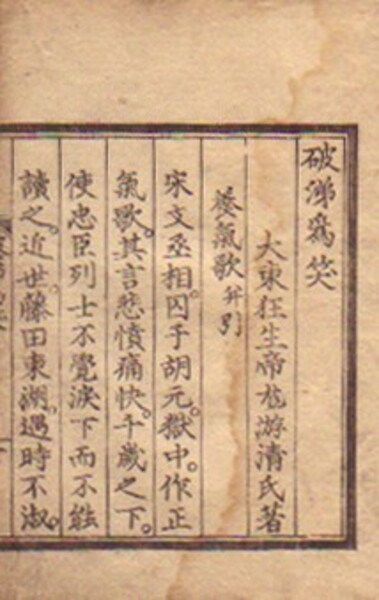 破涕爲笑
大東狂生帝尨游清氏著
養氣歌 并引
宋文丞相。囚于胡元。獄中。作正
氣歌。其言悲憤痛快。千歲之下。
使忠臣列士不覺淚下而不能
讀之。近世。藤田東湖。遇時不淑。